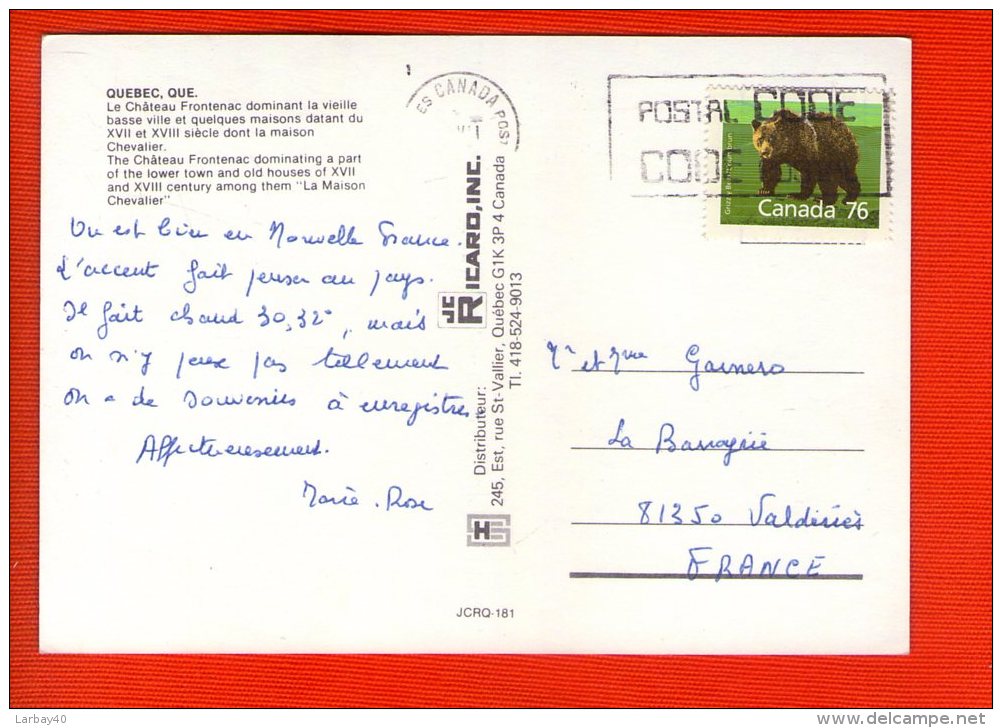 QUEBEC, QUE.
Le Château Frontenac dominant la vieille
basse ville et quelques maisons datant du
XVII et XVIII siècle dont la maison
Chevalier.
The Château Frontenac dominating a part
of the lower town and old houses of XVII
and XVIII century among them "La Maison
Chevalier"
On est bien en Nouvelle France.
L'accent fait penser au pays.
Il fait chaud 30,32°, mais
on n'y pense pas tellement
on a de souvenirs à enregistrer
Affectueusement.
Marie-Rose
JC RICARD, INC.
Distributeur:
245, Est, rue St-Vallier, Québec G1K 3P 4 Canada
Tl. 418-524-9013
JCRQ-181
ES CANADA POST
POSTAL CODE
CODE
Canada 76
Mr et Mme Garnero
La Barragrié
81350 Valdériès
FRANCE
Larbay40
www.delcampe.net